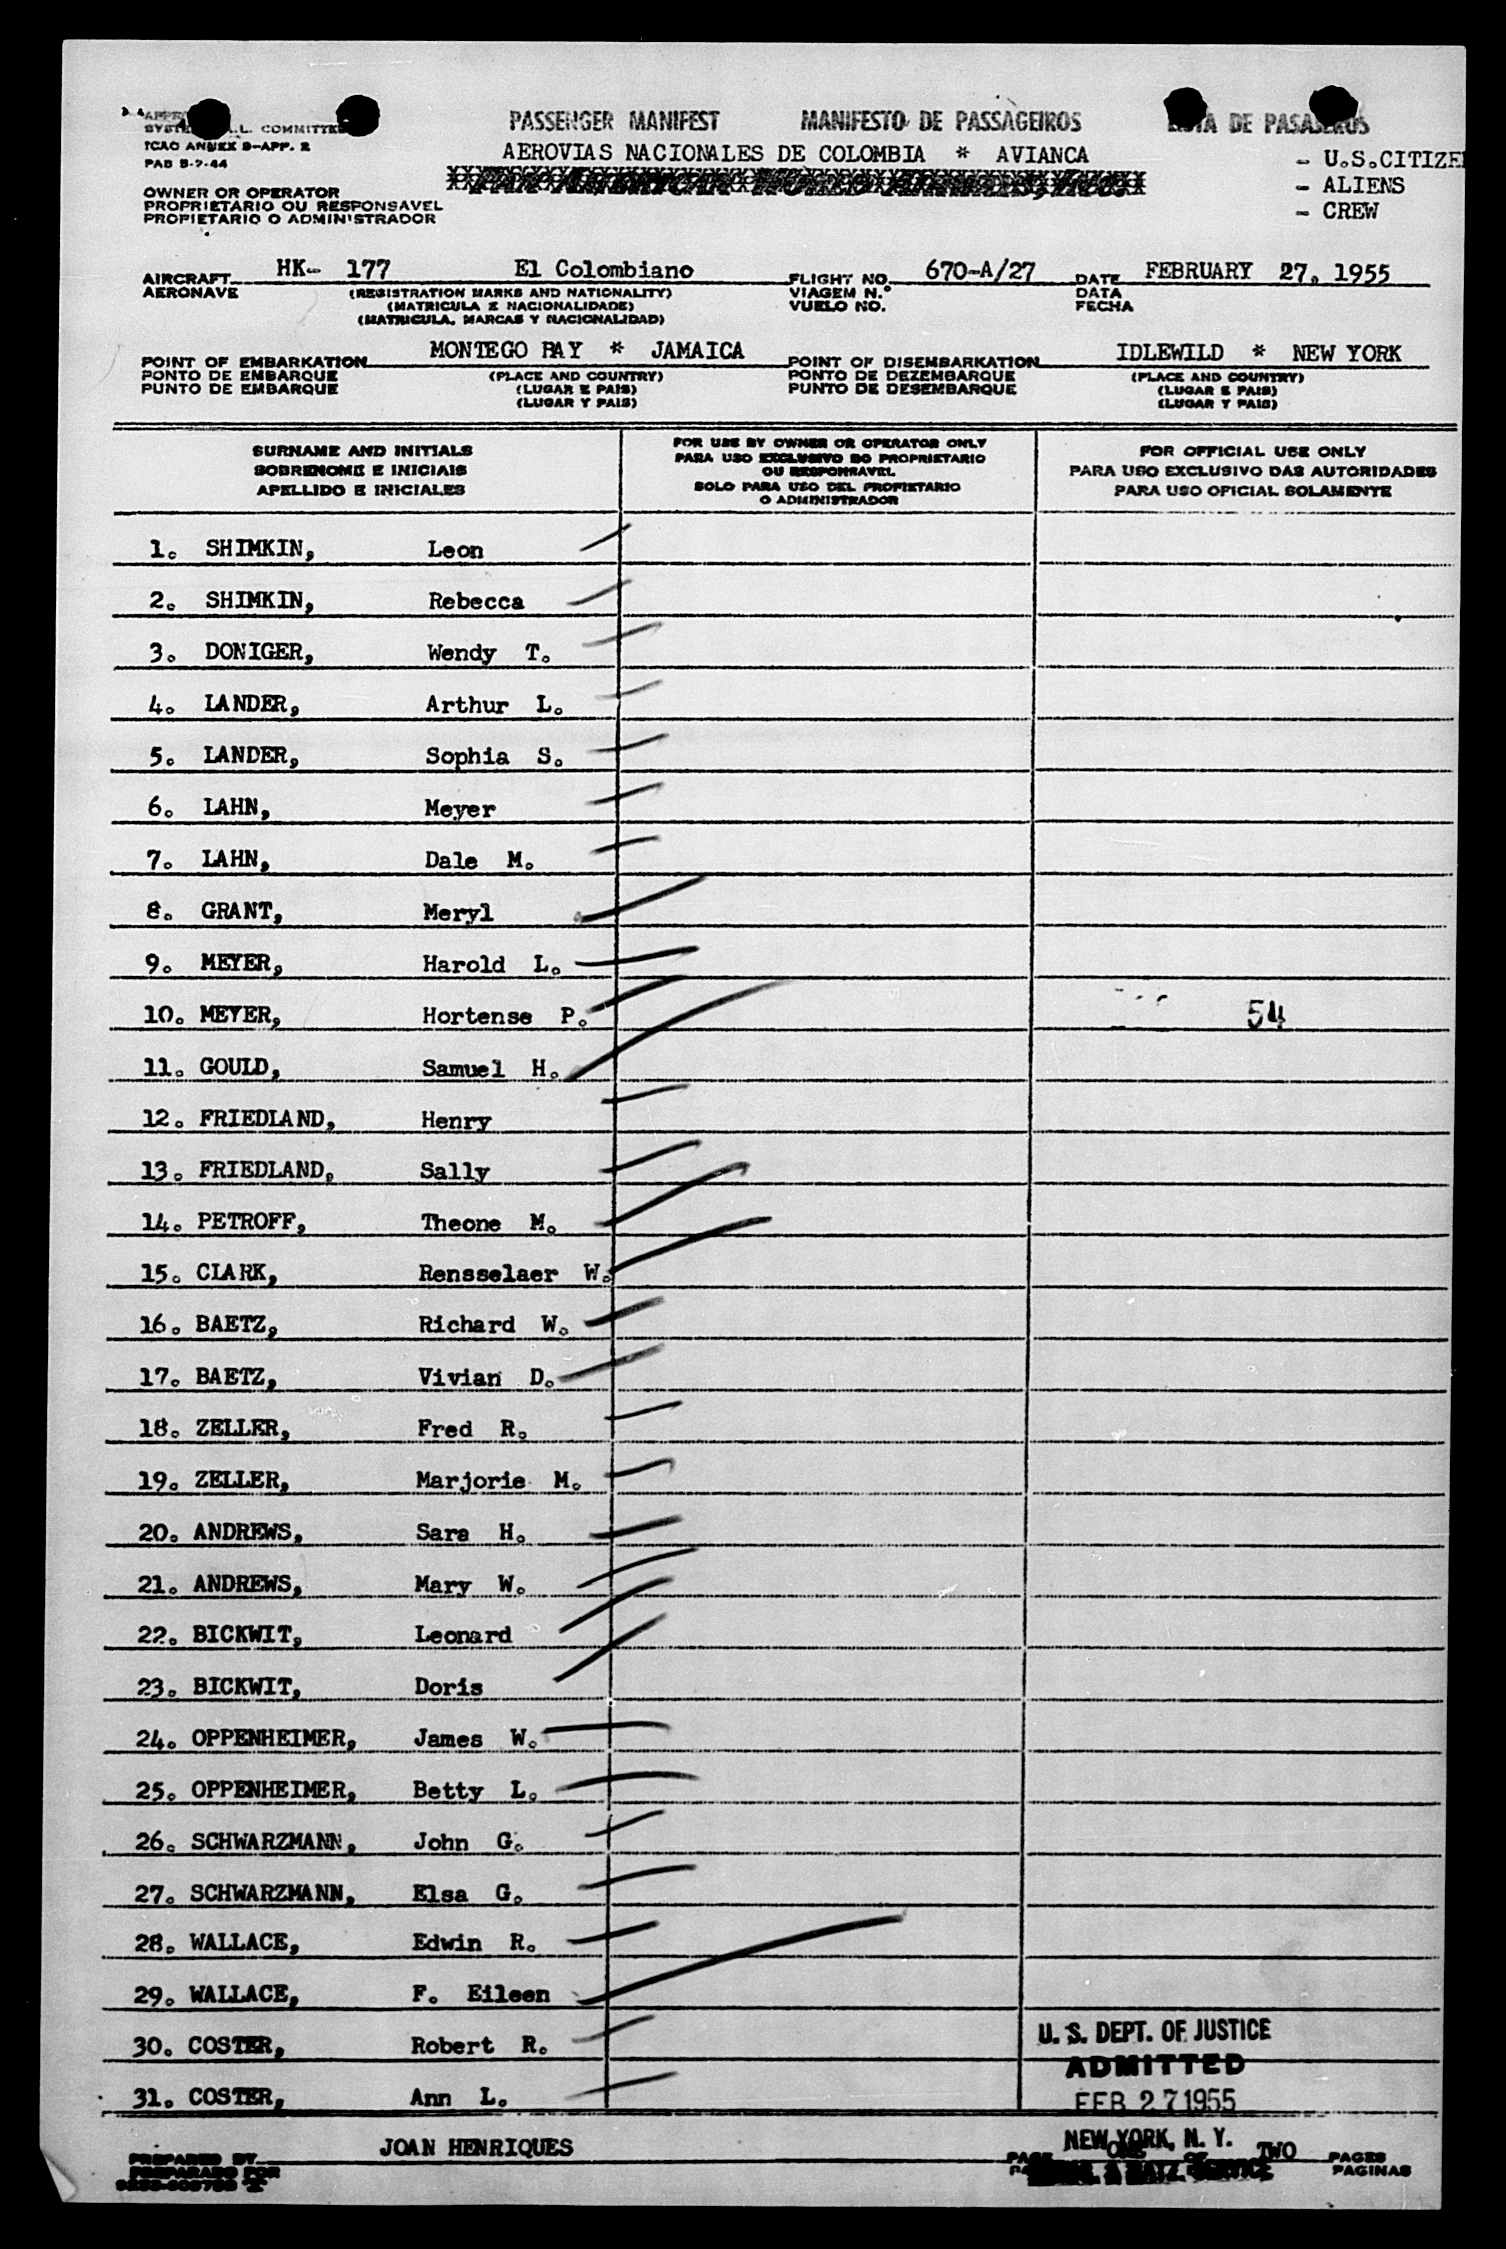 PASSENGER MANIFEST MANIFESTO DE PASSAGEIROS DE PASAJEROS
L. COMMITTEE
ICAO ANNEX 9-APP. 2
PAB 5-7-44
AEROVIAS NACIONALES DE COLOMBIA * AVIANCA
- U.S.CITIZE
- ALIENS
- CREW
OWNER OR OPERATOR
PROPRIETARIO OU RESPONSAVEL
PROPIETARIO O ADMINISTRADOR
AIRCRAFT HK- 177 El Colombiano FLIGHT NO. 670-A/27 DATE FEBRUARY 27, 1955
AERONAVE (REGISTRATION MARKS AND NATIONALITY) VIAGEM N.° DATA
(MATRICULA E NACIONALIDADE) VUELO NO. FECHA
(MATRICULA, MARCAS Y NACIONALIDAD)
POINT OF EMBARKATION MONTEGO BAY * JAMAICA POINT OF DISEMBARKATION IDLEWILD * NEW YORK
PONTO DE EMBARQUE (PLACE AND COUNTRY) PONTO DE DEZEMBARQUE (PLACE AND COUNTRY)
PUNTO DE EMBARQUE (LUGAR E PAIS) PUNTO DE DESEMBARQUE (LUGAR E PAIS)
(LUGAR Y PAIS) (LUGAR Y PAIS)
SURNAME AND INITIALS
SOBRENOME E INICIAIS
APELLIDO E INICIALES
FOR USE BY OWNER OR OPERATOR ONLY
PARA USO EXCLUSIVO DO PROPRIETARIO
OU RESPONSAVEL
SOLO PARA USO DEL PROPIETARIO
O ADMINISTRADOR
FOR OFFICIAL USE ONLY
PARA USO EXCLUSIVO DAS AUTORIDADES
PARA USO OFICIAL SOLAMENTE
1. SHIMKIN, Leon
2. SHIMKIN, Rebecca
3. DONIGER, Wendy T.
4. LANDER, Arthur L.
5. LANDER, Sophia S.
6. LAHN, Meyer
7. LAHN, Dale M.
8. GRANT, Meryl
9. MEYER, Harold L.
10. MEYER, Hortense P. 54
11. GOULD, Samuel H.
12. FRIEDLAND, Henry
13. FRIEDLAND, Sally
14. PETROFF, Theone M.
15. CLARK, Rensselaer W.
16. BAETZ, Richard W.
17. BAETZ, Vivian D.
18. ZELLER, Fred R.
19. ZELLER, Marjorie M.
20. ANDREWS, Sara H.
21. ANDREWS, Mary W.
22. BICKWIT, Leonard
23. BICKWIT, Doris
24. OPPENHEIMER, James W.
25. OPPENHEIMER, Betty L.
26. SCHWARZMANN, John G.
27. SCHWARZMANN, Elsa G.
28. WALLACE, Edwin R.
29. WALLACE, F. Eileen
30. COSTER, Robert R.
31. COSTER, Ann L.
U. S. DEPT. OF JUSTICE
ADMITTED
FEB 27 1955
NEW YORK, N. Y.
PREPARED BY JOAN HENRIQUES
PREPARADO POR
PAGE ONE OF TWO PAGES
PAGINAS